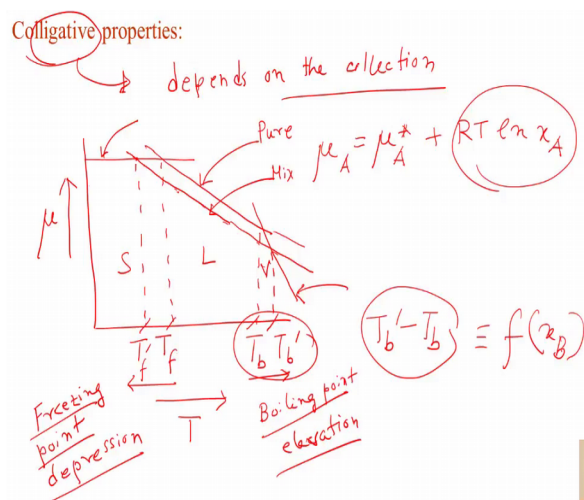 Colligative properties:
depends on the collection
Pure
Mix
μ_A = μ_A^* + RT ln x_A
μ
S
L
V
T_f' T_f
T_b T_b'
T_b' - T_b ≡ f(x_B)
Freezing
point
depression
T
Boiling point
elevation